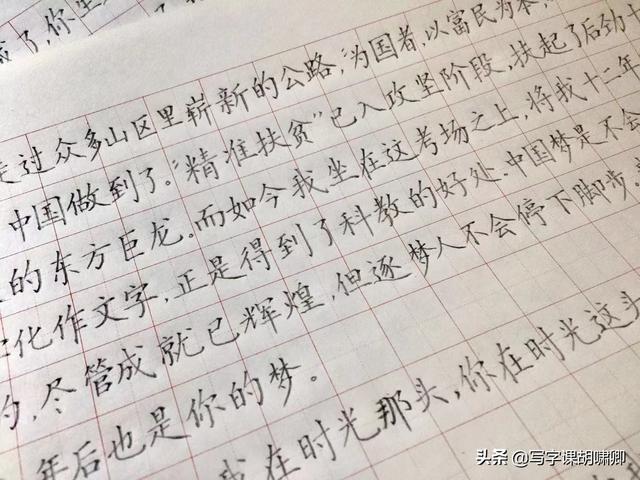 了,你生
走过众多山区里崭新的公路,“为国者,以富民为本,
中国做到了。“精准扶贫”已入攻坚阶段,扶起了后劲十
的东方巨龙。而如今我坐在这考场之上,将我十二年
化作文字,正是得到了科教的好处.中国梦是不会
的,尽管成就已辉煌,但逐梦人不会停下脚步,
年后也是你的梦。
我在时光那头,你在时光这头
头条 @写字课胡啸卿